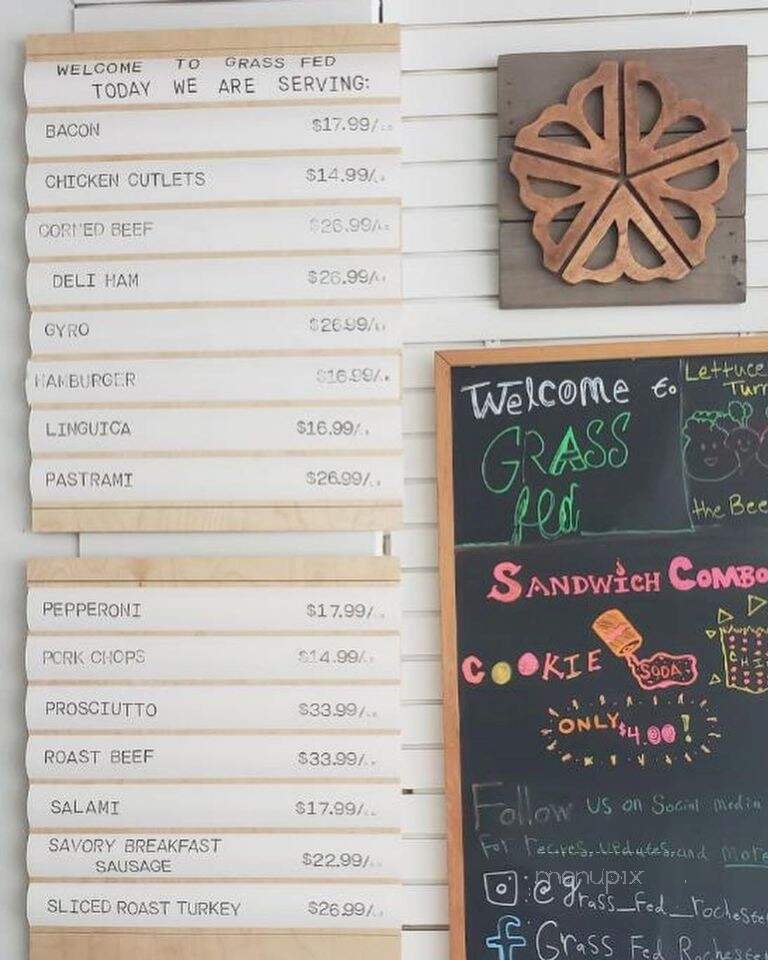 WELCOME TO GRASS FED
TODAY WE ARE SERVING:
BACON $17.99/LB
CHICKEN CUTLETS $14.99/LB
CORNED BEEF $26.99/LB
DELI HAM $26.99/LB
GYRO $26.99/LB
HAMBURGER $16.99/LB
LINGUICA $16.99/LB
PASTRAMI $26.99/LB
PEPPERONI $17.99/LB
PORK CHOPS $14.99/LB
PROSCIUTTO $33.99/LB
ROAST BEEF $33.99/LB
SALAMI $17.99/LB
SAVORY BREAKFAST
SAUSAGE $22.99/LB
SLICED ROAST TURKEY $26.99/LB
Welcome to
GRASS
fed
Lettuce
Turn
the Bee
SANDWiCH COMBO
COOKIE
SODA
CHI
ONLY $4.00!
Follow us on Social media
For recipes, updates, and more
@grass_fed_rocheste
Grass Fed Rochester
menupix